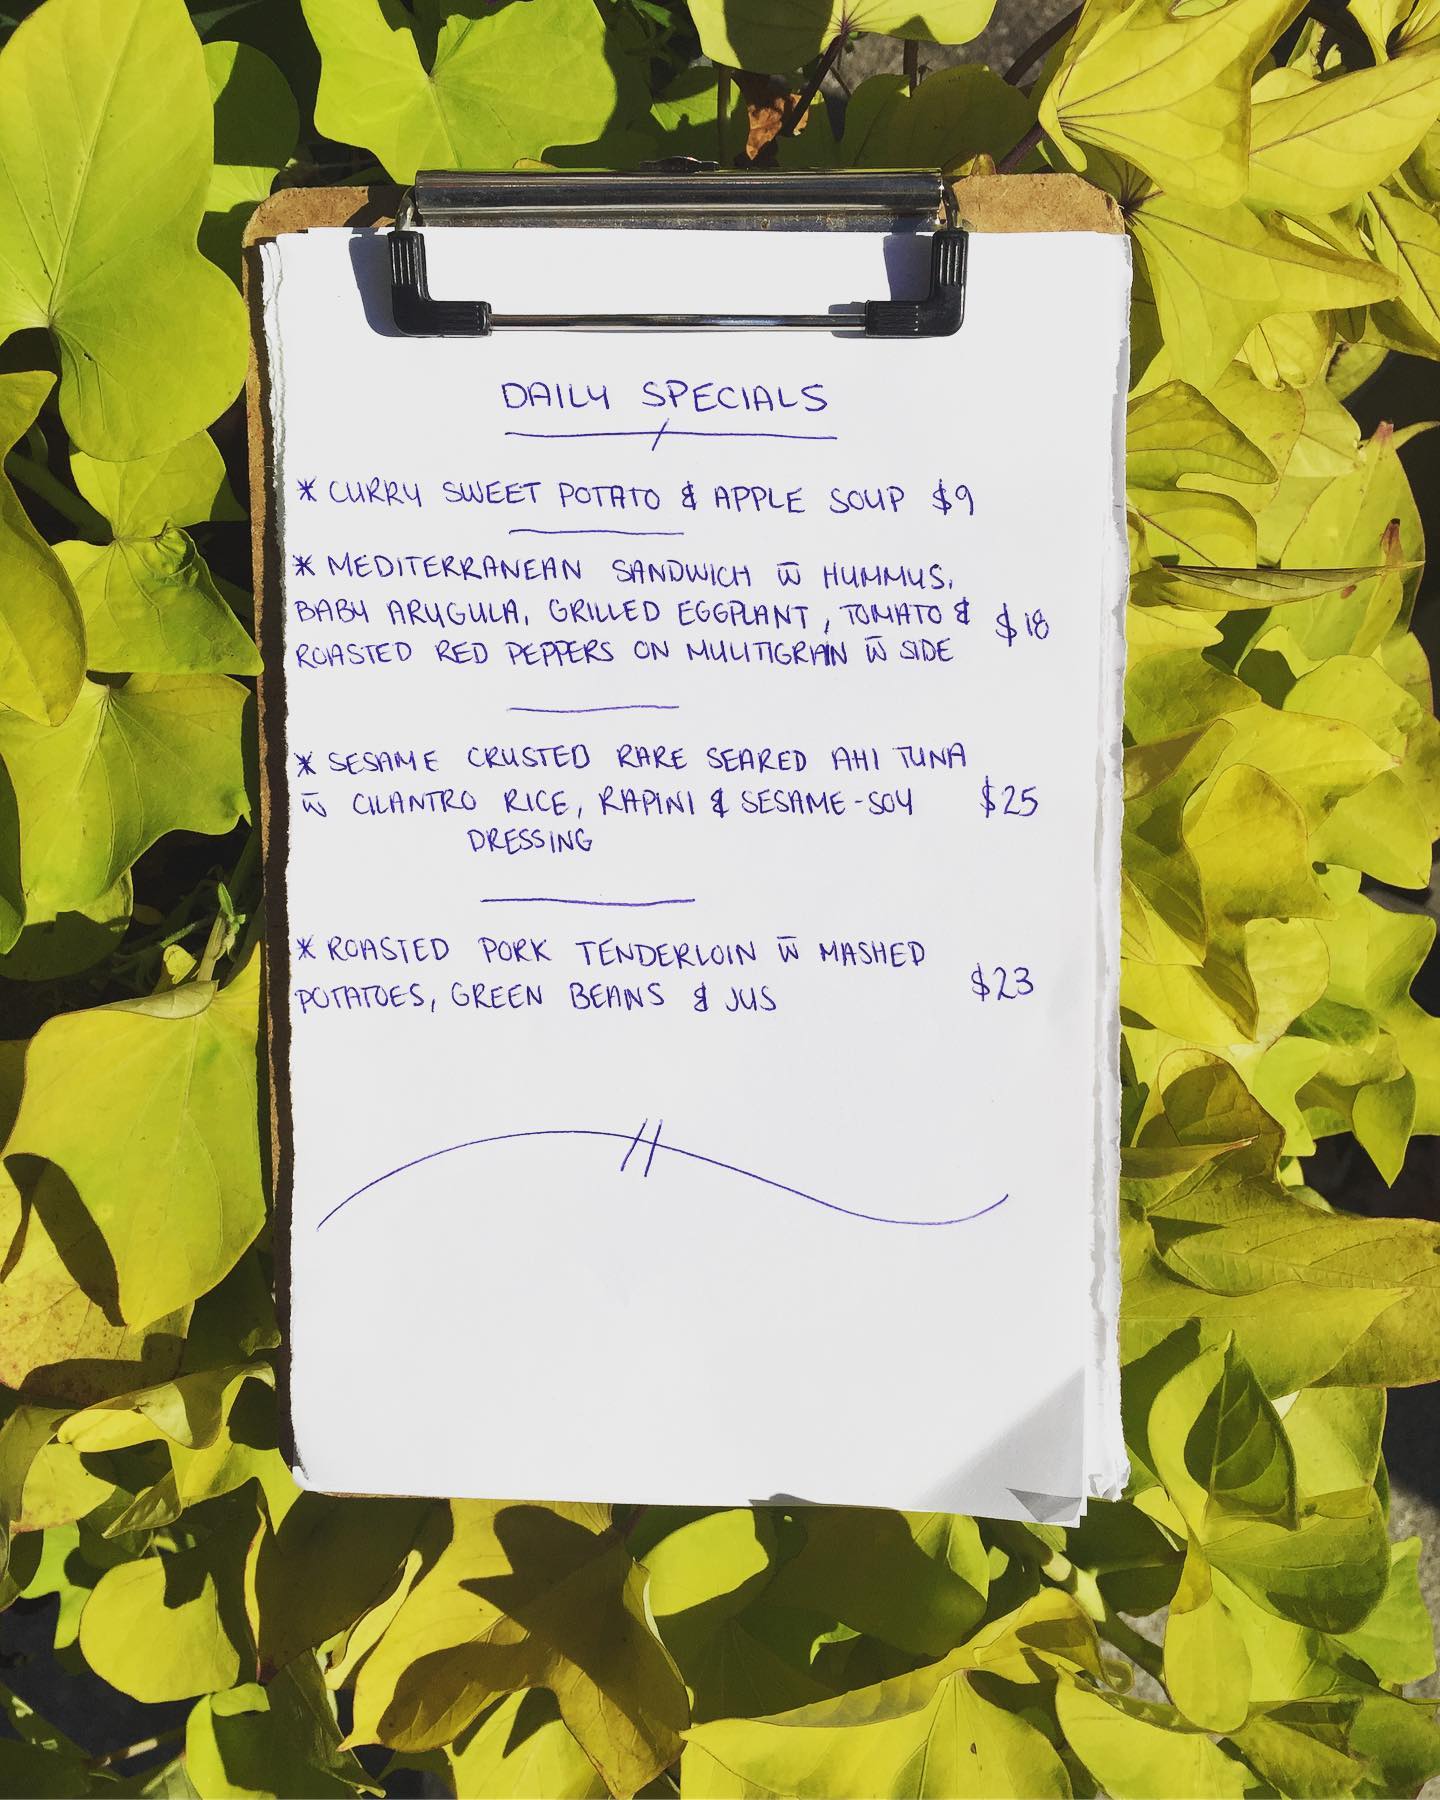 DAILY SPECIALS
* CURRY SWEET POTATO & APPLE SOUP $9
* MEDITERRANEAN SANDWICH w̅ HUMMUS,
BABY ARUGULA, GRILLED EGGPLANT, TOMATO & $18
ROASTED RED PEPPERS ON MULITIGRAIN w̅ SIDE
* SESAME CRUSTED RARE SEARED AHI TUNA
w̅ CILANTRO RICE, RAPINI & SESAME-SOY $25
DRESSING
* ROASTED PORK TENDERLOIN w̅ MASHED
POTATOES, GREEN BEANS & JUS $23